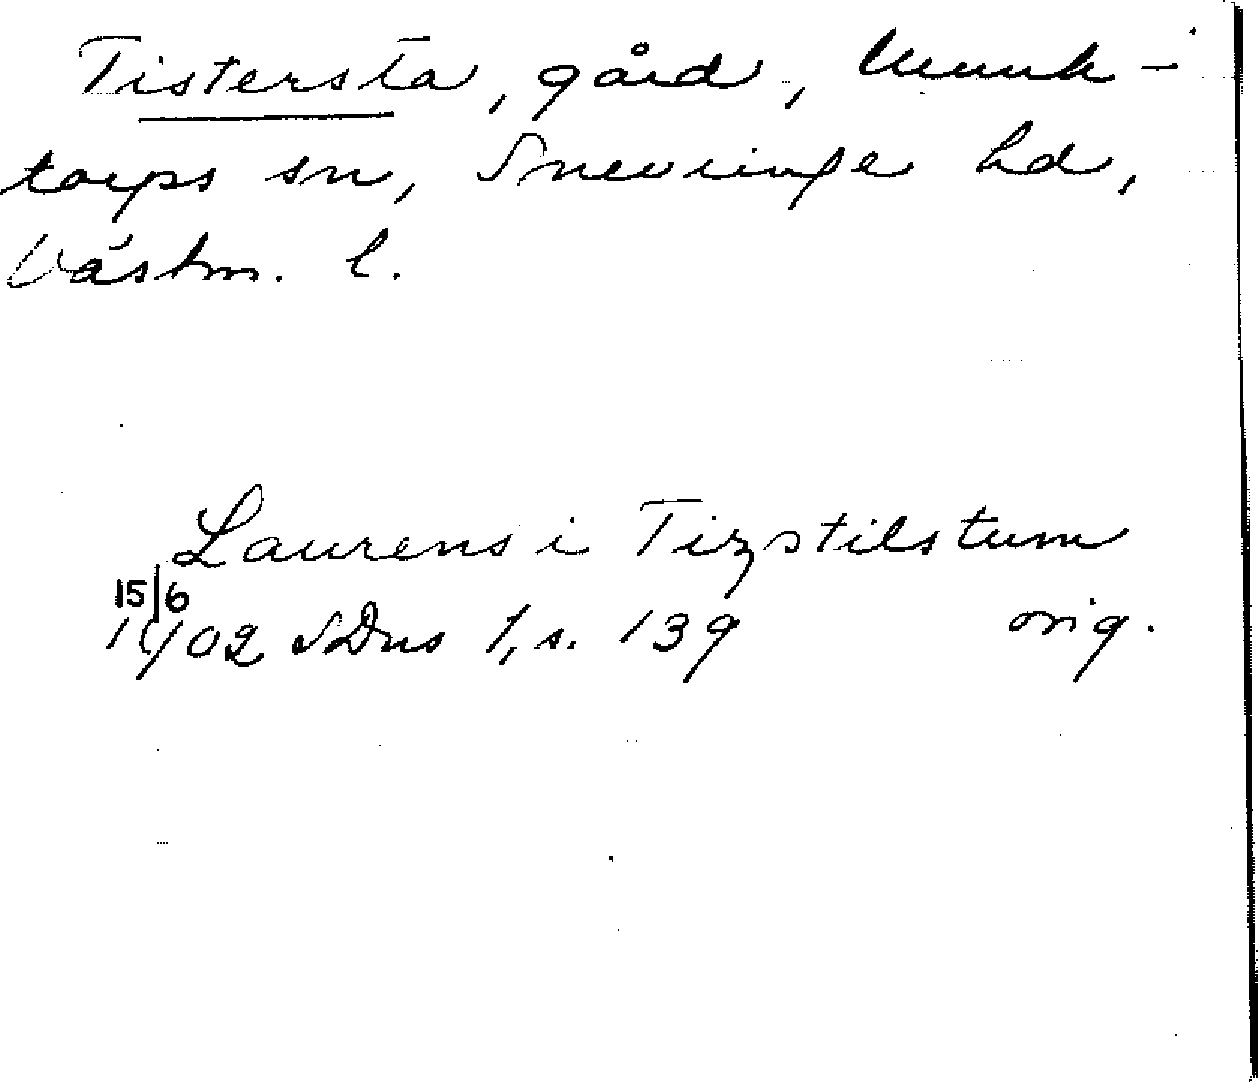 Tistersta, gård, Munk-
torps sn, Snevringe hd,
Västm. l.
Laurens i Tizstilstum
15/6
1402 SDns 1, s. 139 orig.